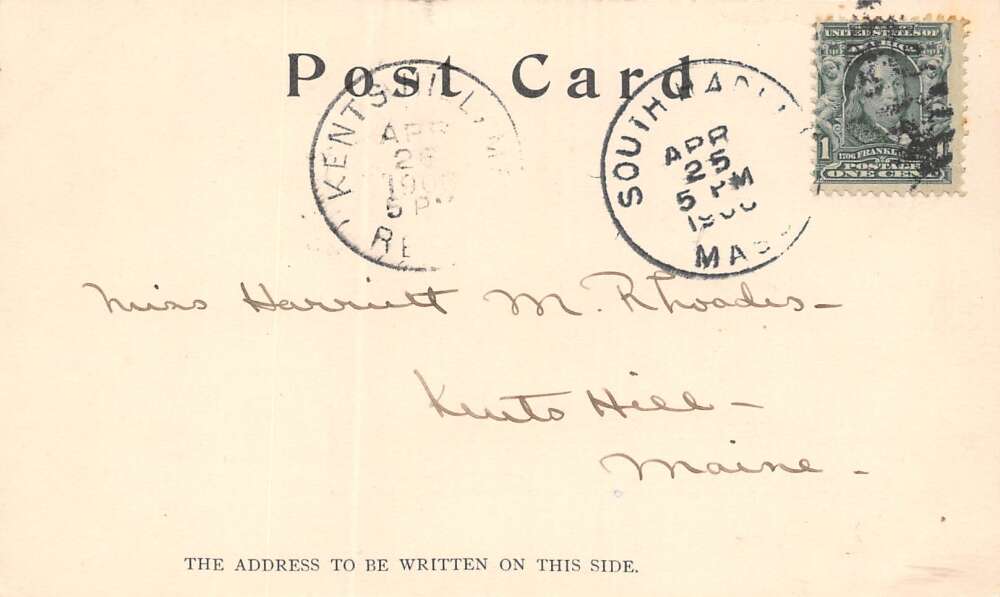 Post Card
KENTS HILL, M
APR
190
5 P
RE
SOUTH
APR
25
5 PM
MAS
UNITED STATES OF
AMERICA
1 1706 FRANKLIN
POSTAGE
ONE CENT
Miss Harriett M. Rhoades-
Kents Hill-
Maine-
THE ADDRESS TO BE WRITTEN ON THIS SIDE.